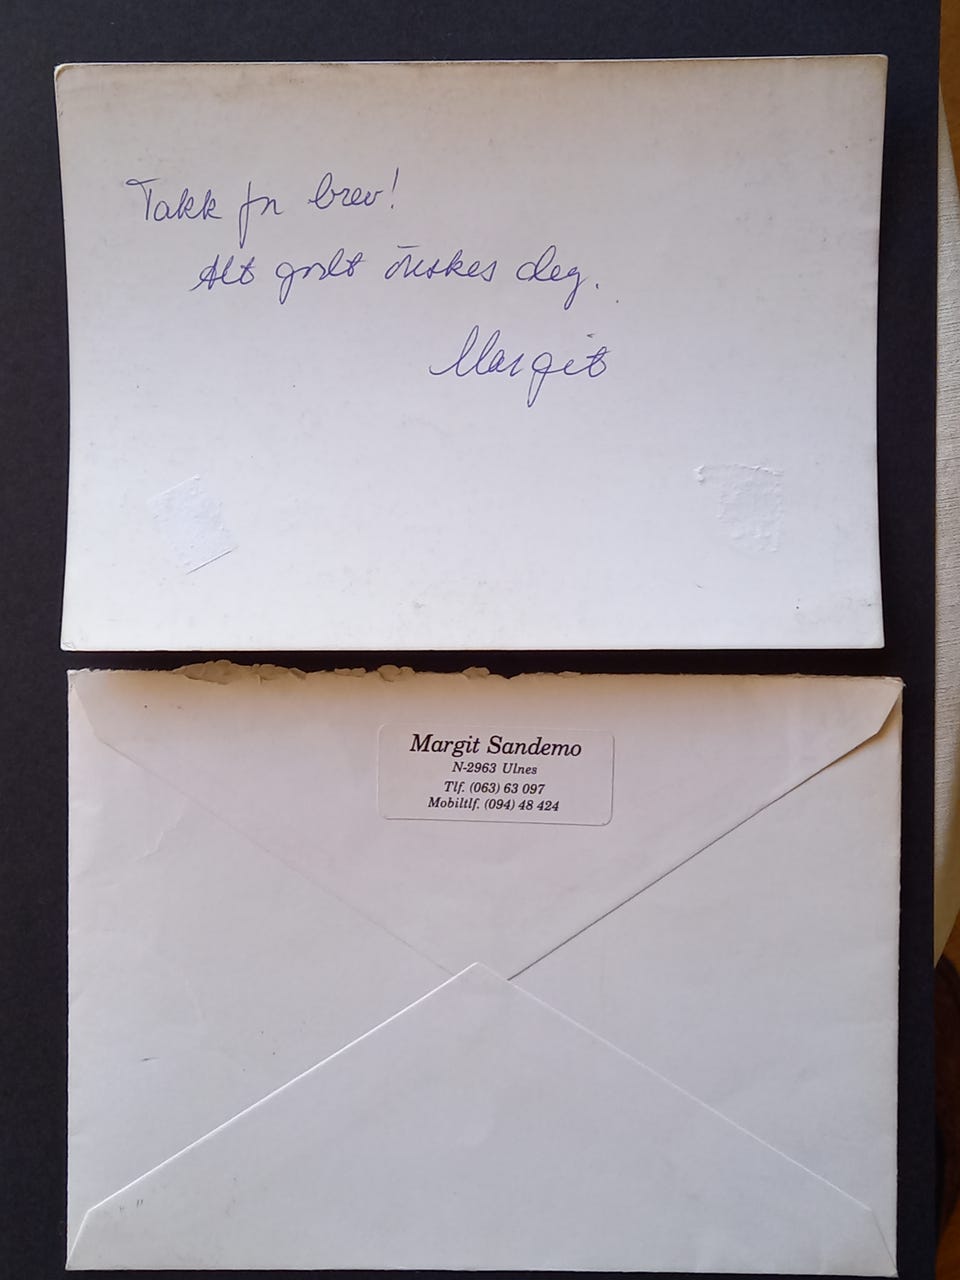 Takk for brev!
Alt godt önskes deg.
Margit
Margit Sandemo
N-2963 Ulnes
Tlf. (063) 63 097
Mobiltlf. (094) 48 424